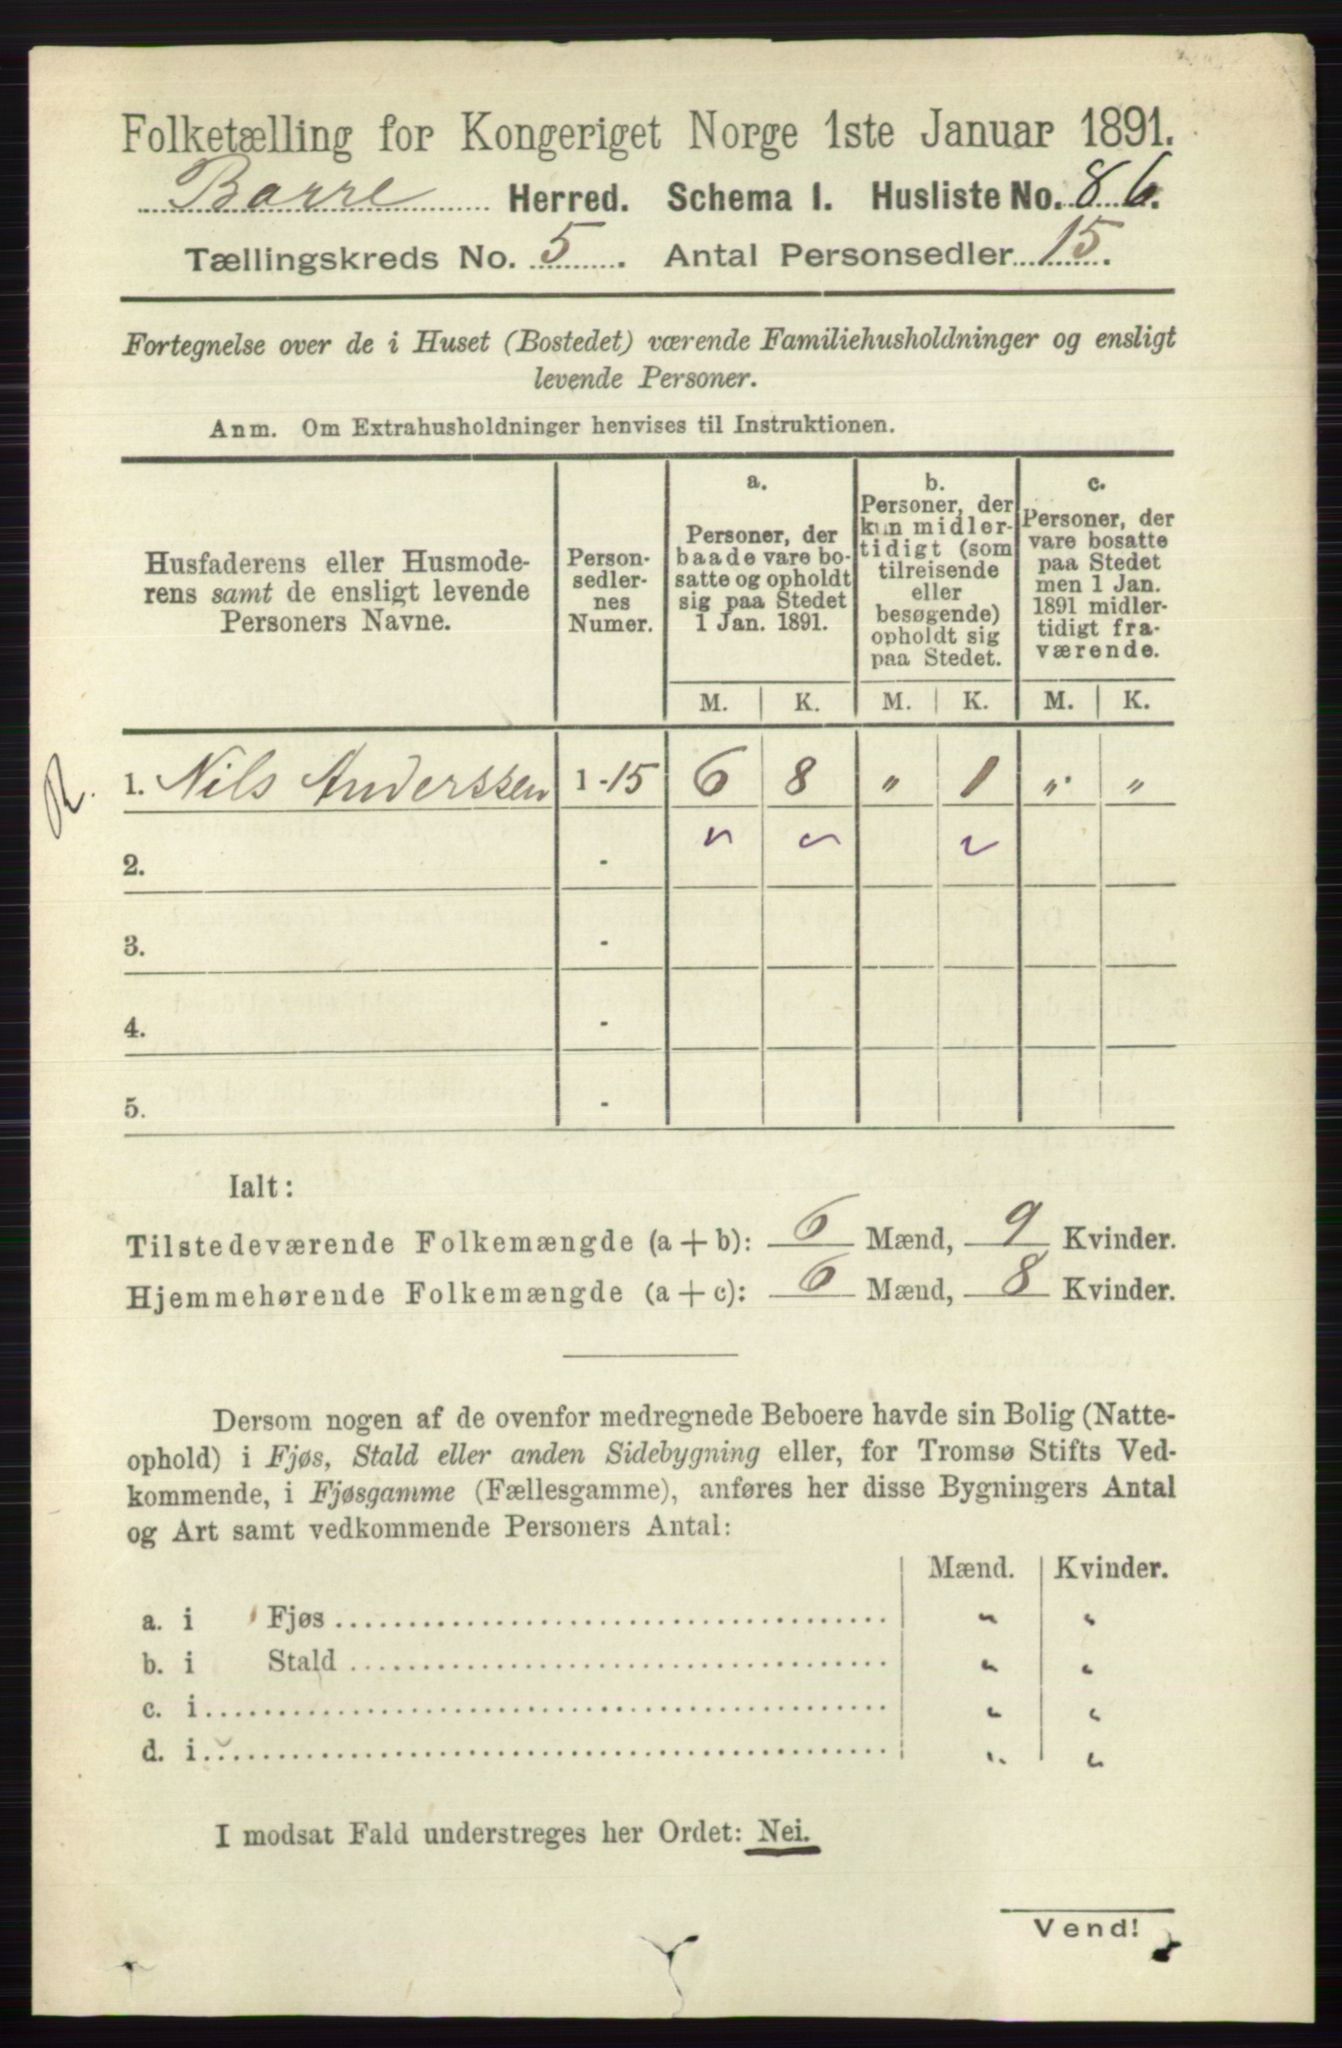 Folketælling for Kongeriget Norge 1ste Januar 1891.
Borre Herred. Schema I. Husliste No. 86.
Tællingskreds No. 5. Antal Personsedler 15.
Fortegnelse over de i Huset (Bostedet) værende Familiehusholdninger og ensligt
levende Personer.
Anm. Om Extrahusholdninger henvises til Instruktionen.
Husfaderens eller Husmode-
rens samt de ensligt levende
Personers Navne.
Person-
sedler-
nes
Numer.
a.
Personer, der
baade vare bo-
satte og opholdt
sig paa Stedet
1 Jan. 1891.
b.
Personer, der
kun midler-
tidigt (som
tilreisende
eller
besøgende)
opholdt sig
paa Stedet.
c.
Personer, der
vare bosatte
paa Stedet
men 1 Jan.
1891 midler-
tidigt fra-
værende.
M. K. M. K. M. K.
R.
1. Nils Anderssen 1-15 6 8 " 1 " "
2. -
3. -
4. -
5. -
Ialt:
Tilstedeværende Folkemængde (a + b): 6 Mænd, 9 Kvinder.
Hjemmehørende Folkemængde (a + c): 6 Mænd, 8 Kvinder.
Dersom nogen af de ovenfor medregnede Beboere havde sin Bolig (Natte-
ophold) i Fjøs, Stald eller anden Sidebygning eller, for Tromsø Stifts Ved-
kommende, i Fjøsgamme (Fællesgamme), anføres her disse Bygningers Antal
og Art samt vedkommende Personers Antal:
Mænd. Kvinder.
a. i Fjøs " "
b. i Stald " "
c. i " "
d. i " "
I modsat Fald understreges her Ordet: Nei.
Vend!